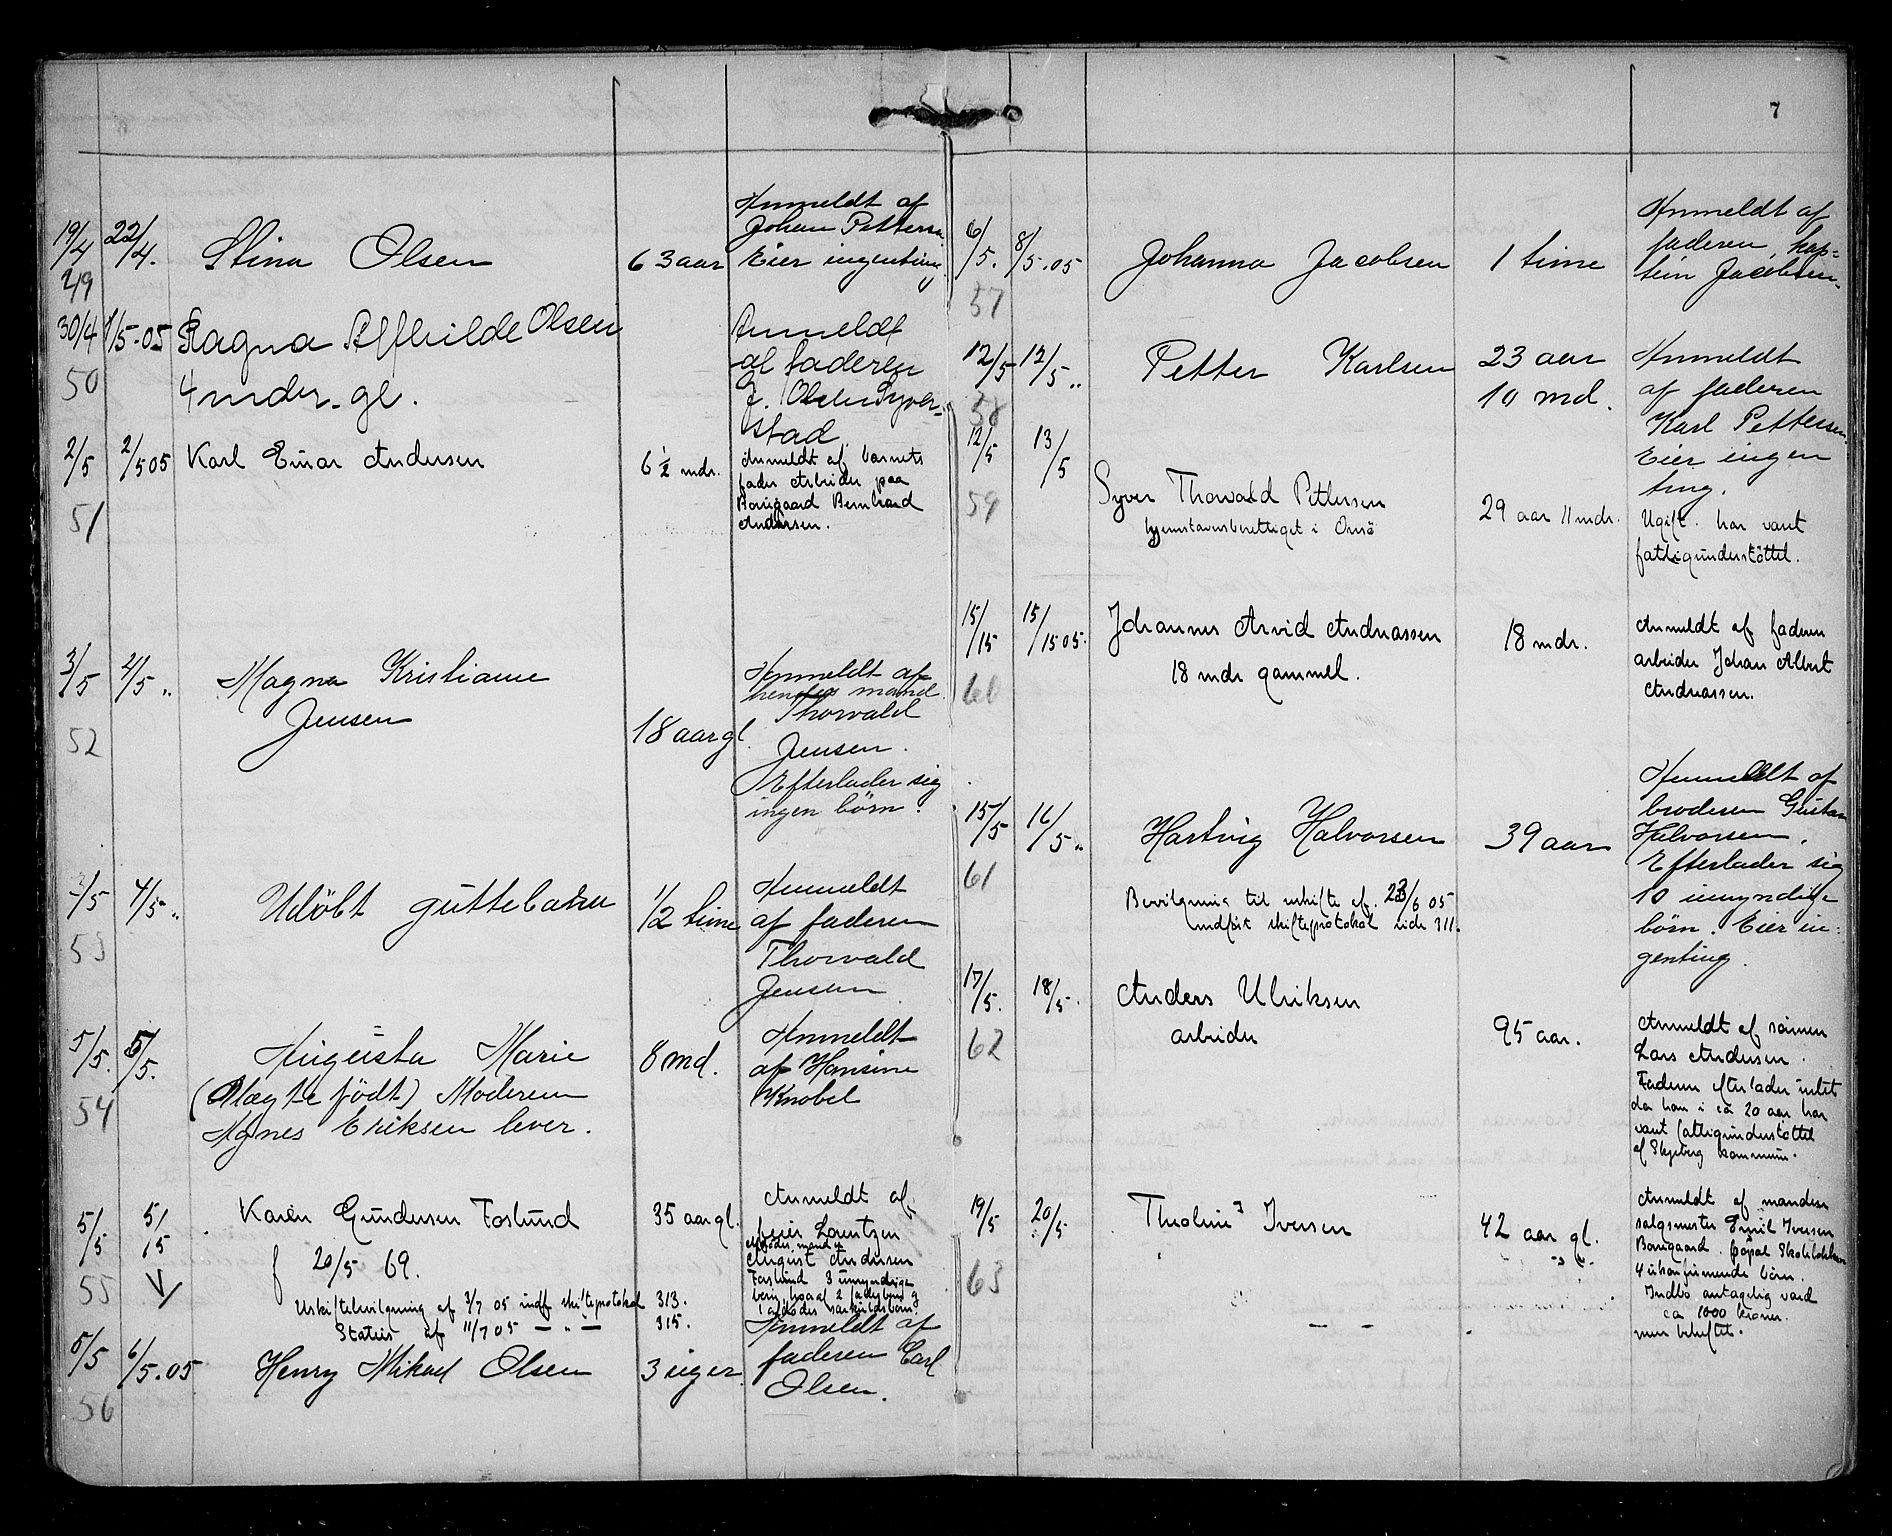 19/4 22/4. Stina Olsen 63 aar
Anmeldt af
Johan Petterse.
Eier ingenting
49
30/4 1/5-05 Ragna Alfhilde Olsen
4 mdr. gl.
Anmeldt
af faderen
J. Olsen Syver-
stad.
50
2/5 2/5 05 Karl Einar Andersen 6 1/2 mdr.
Anmeldt af barnets
fader Arbeider paa
Borregaard Bernhard
Andersen.
51
3/5 4/5 „ Magna Kristianne
Jensen
18 aar gl.
Anmeldt af
hendes mand
Thorvald
Jensen.
Efterlader sig
ingen börn.
52
4/5 „ Udöbt guttebarn 1/2 time
Anmeldt
af faderen
Thorvald
Jensen
53
5/5. 5/5. Augusta Marie 8 md.
(Uægte födt) Moderen
Agnes Eriksen lever.
Anmeldt
af Hansine
Knobel
54
5/5 5/5 Karen Gundersen Foslund 35 aar gl.
f 20/5 69.
Uskiftebevilgning af 3/7 05 indf skifteprotokol 313.
Status af 11/7 05 — „ — 315.
Anmeldt af
Lauritzen
Afdödes mand er
August Andersen
Foslund 3 umyndige
55 V
5/5 6/5.05 Henry Mikael Olsen 3 uger
Anmeldt af
faderen Carl
Olsen.
56
7
6/5. 8/5.05 Johanna Jacobsen 1 time
Anmeldt af
faderen kap-
tein Jacobsen.
57
12/5 12/5 „ Petter Karlsen 23 aar
10 md.
Anmeldt
af faderen
Karl Pettersen.
Eier ingen
ting.
58
12/5 13/5
Syver Thorvald Pettersen
hjemstavnsberettiget i Onsö
29 aar 11 mdr.
Ugift. har vært
fattigunderstöttet.
59
15/15 15/15 05. Johannes Arvid Andreassen
18 mdr gammel.
18 mdr.
Anmeldt af faderen
arbeider Johan Albert
Andreassen.
60
15/5 16/5 „ Hartvig Halvorsen 39 aar
Bevilgning til uskifte af. 23/6 05
indfört skifteprotokol side 311.
Anmeldt af
broderen Gustav
Halvorsen.
Efterlader sig
10 umyndige
börn. Eier in-
genting.
61
17/5. 18/5. Anders Ulriksen
arbeider
95 aar.
Anmeldt af sönnen
Lars Andersen.
Faderen efterlader intet
da han i ca 20 aar har
vært fattigunderstöttet
af Skjeberg kommune.
62
19/5 20/5 Theoline Iversen 42 aar gl.
Anmeldt af manden
salgsmester Emil Iversen
Borregaard.
4 ukonfirmerede börn.
Indbo antagelig værd
ca 1000 kroner.
men beheftet.
63